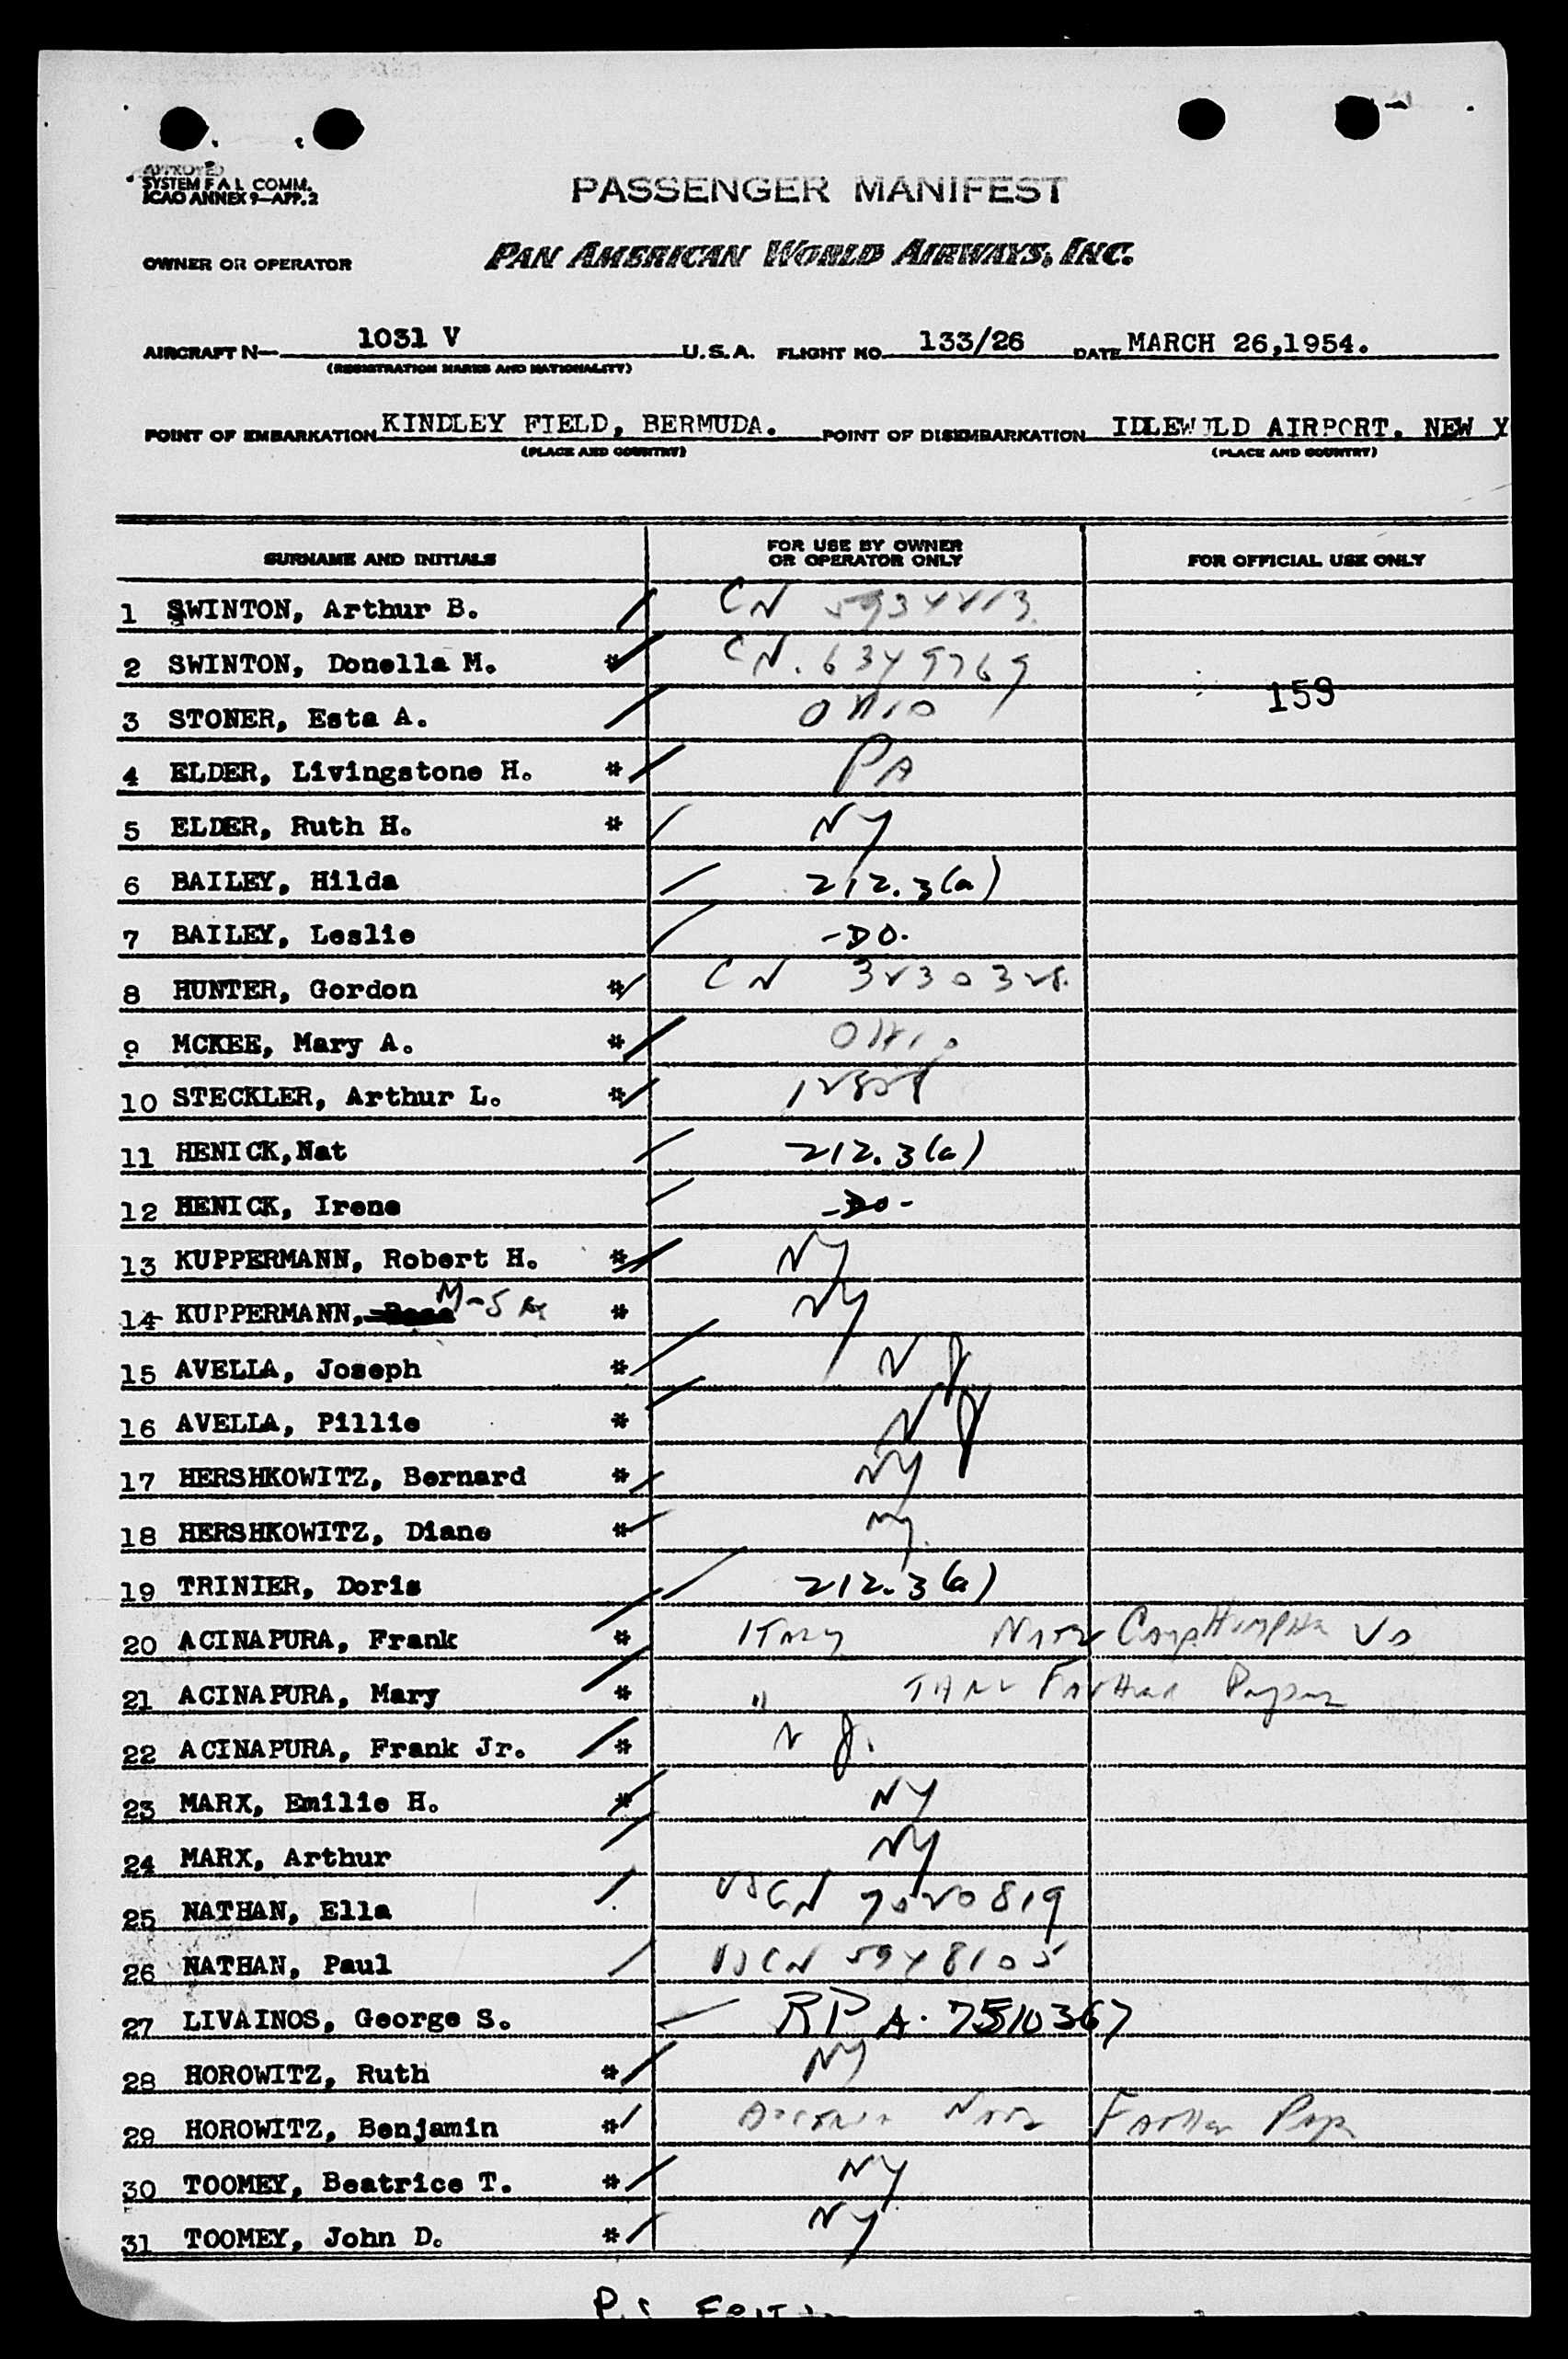 APPROVED
SYSTEM F A L COMM.
ICAO ANNEX 9-APP.2
PASSENGER MANIFEST
OWNER OR OPERATOR PAN AMERICAN WORLD AIRWAYS, INC.
AIRCRAFT N- 1031 V U.S.A. FLIGHT NO. 133/26 DATE MARCH 26,1954.
(REGISTRATION MARKS AND NATIONALITY)
POINT OF EMBARKATION KINDLEY FIELD, BERMUDA. POINT OF DISEMBARKATION IDLEWILD AIRPORT, NEW Y
(PLACE AND COUNTRY) (PLACE AND COUNTRY)
SURNAME AND INITIALS FOR USE BY OWNER OR OPERATOR ONLY FOR OFFICIAL USE ONLY
1 SWINTON, Arthur B. CN
2 SWINTON, Donella M. * CN. 6349769
159
3 STONER, Esta A. OHIO
4 ELDER, Livingstone H. * PA
5 ELDER, Ruth H. * NY
6 BAILEY, Hilda 212.3(a)
7 BAILEY, Leslie -DO-
8 HUNTER, Gordon * CN
9 MCKEE, Mary A. * OHIO
10 STECKLER, Arthur L. *
11 HENICK,Nat 212.3(a)
12 HENICK, Irene -DO-
13 KUPPERMANN, Robert H. * NY
14 KUPPERMANN, * NY
15 AVELLA, Joseph * NJ
16 AVELLA, Pillie * NJ
17 HERSHKOWITZ, Bernard * NY
18 HERSHKOWITZ, Diane * NY
19 TRINIER, Doris 212.3(a)
20 ACINAPURA, Frank * ITALY
21 ACINAPURA, Mary * " THRU FATHER
22 ACINAPURA, Frank Jr. * N J.
23 MARX, Emilie H. * NY
24 MARX, Arthur NY
25 NATHAN, Ella USCN 7020819
26 NATHAN, Paul USCN 5948105
27 LIVAINOS, George S. RP A. 7510367
28 HOROWITZ, Ruth * NY
29 HOROWITZ, Benjamin * FATHER
30 TOOMEY, Beatrice T. * NY
31 TOOMEY, John D. * NY